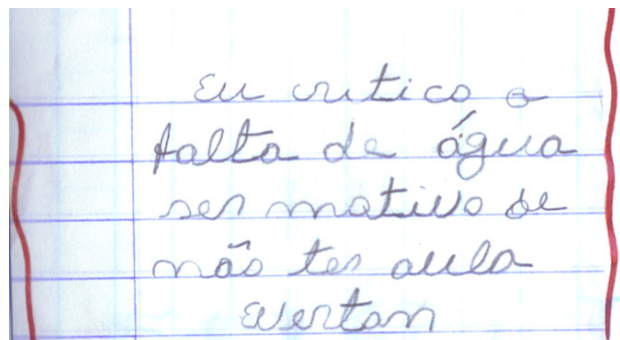 Eu critico a
falta de água
ser motivo de
não ter aula
Everton